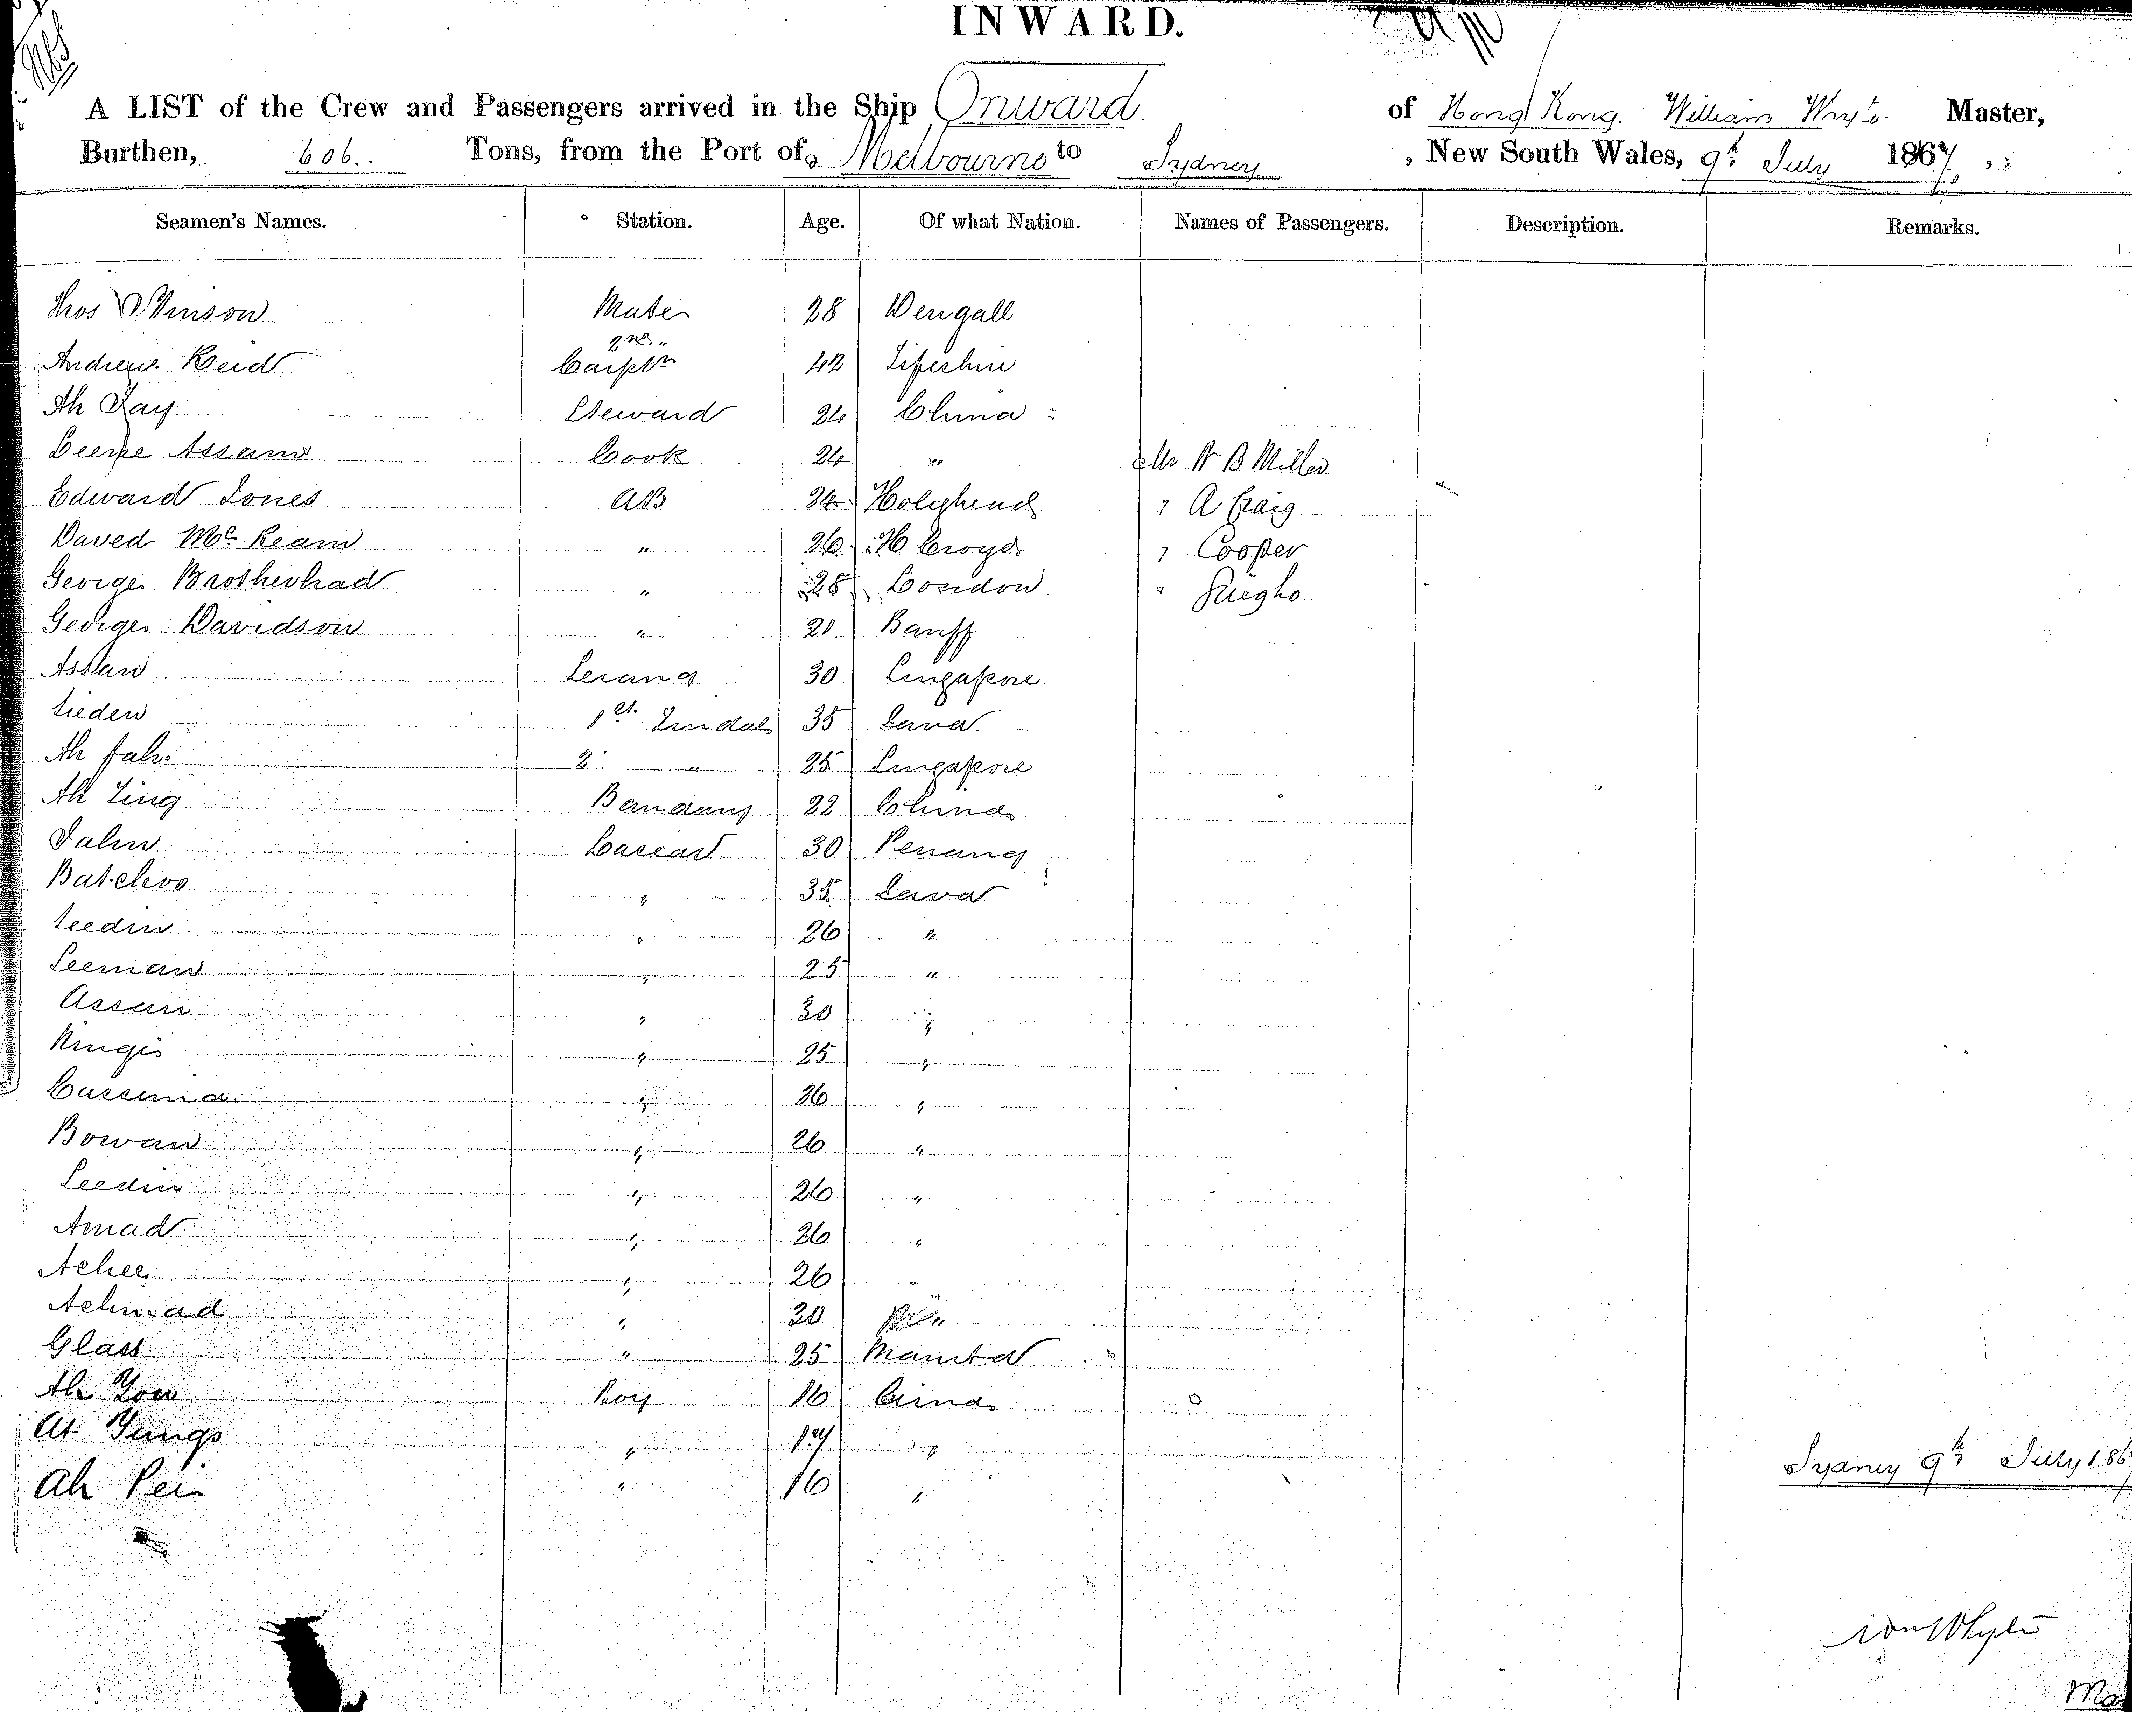 INWARD.
A LIST of the Crew and Passengers arrived in the Ship Onward of Hong Kong. William Whyte Master,
Burthen, 606 Tons, from the Port of Melbourne to Sydney, New South Wales, 9th July 1867
Seamen's Names. Station. Age. Of what Nation. Names of Passengers. Description. Remarks.
Thos Mate 28
Andrew Reid Carptr 42 Fifeshire
Ah Steward 24 China
Assam Cook 24 " Mr W B Miller
Edward Jones AB 24 Holyhead " A Craig
Daved Mc Keam " 26 " Cooper
George Brotherhad " 28 London "
George Davidson " 20 Banff
Assan Serang 30 Singapore
Sieden 1st Tindal 35 Java
Ah 2 " 25 Singapore
Ah Ling 22 China
Salin Cassad 30 Penang
Batchoo " 35 Java
Seedin " 26 "
Seeman " 25 "
Assan " 30 "
Ringis " 25 "
Cassima " 26 "
Bowan " 26 "
Seedin " 26 "
Amad " 26 "
Achee " 26 "
Achmad " 30
Glass " 25 Manila
Ah You boy 16 Cina
At Jungs " 17 "
Ah Pei " 16 "
Sydney 9th July 186
Wm Whyte
Ma